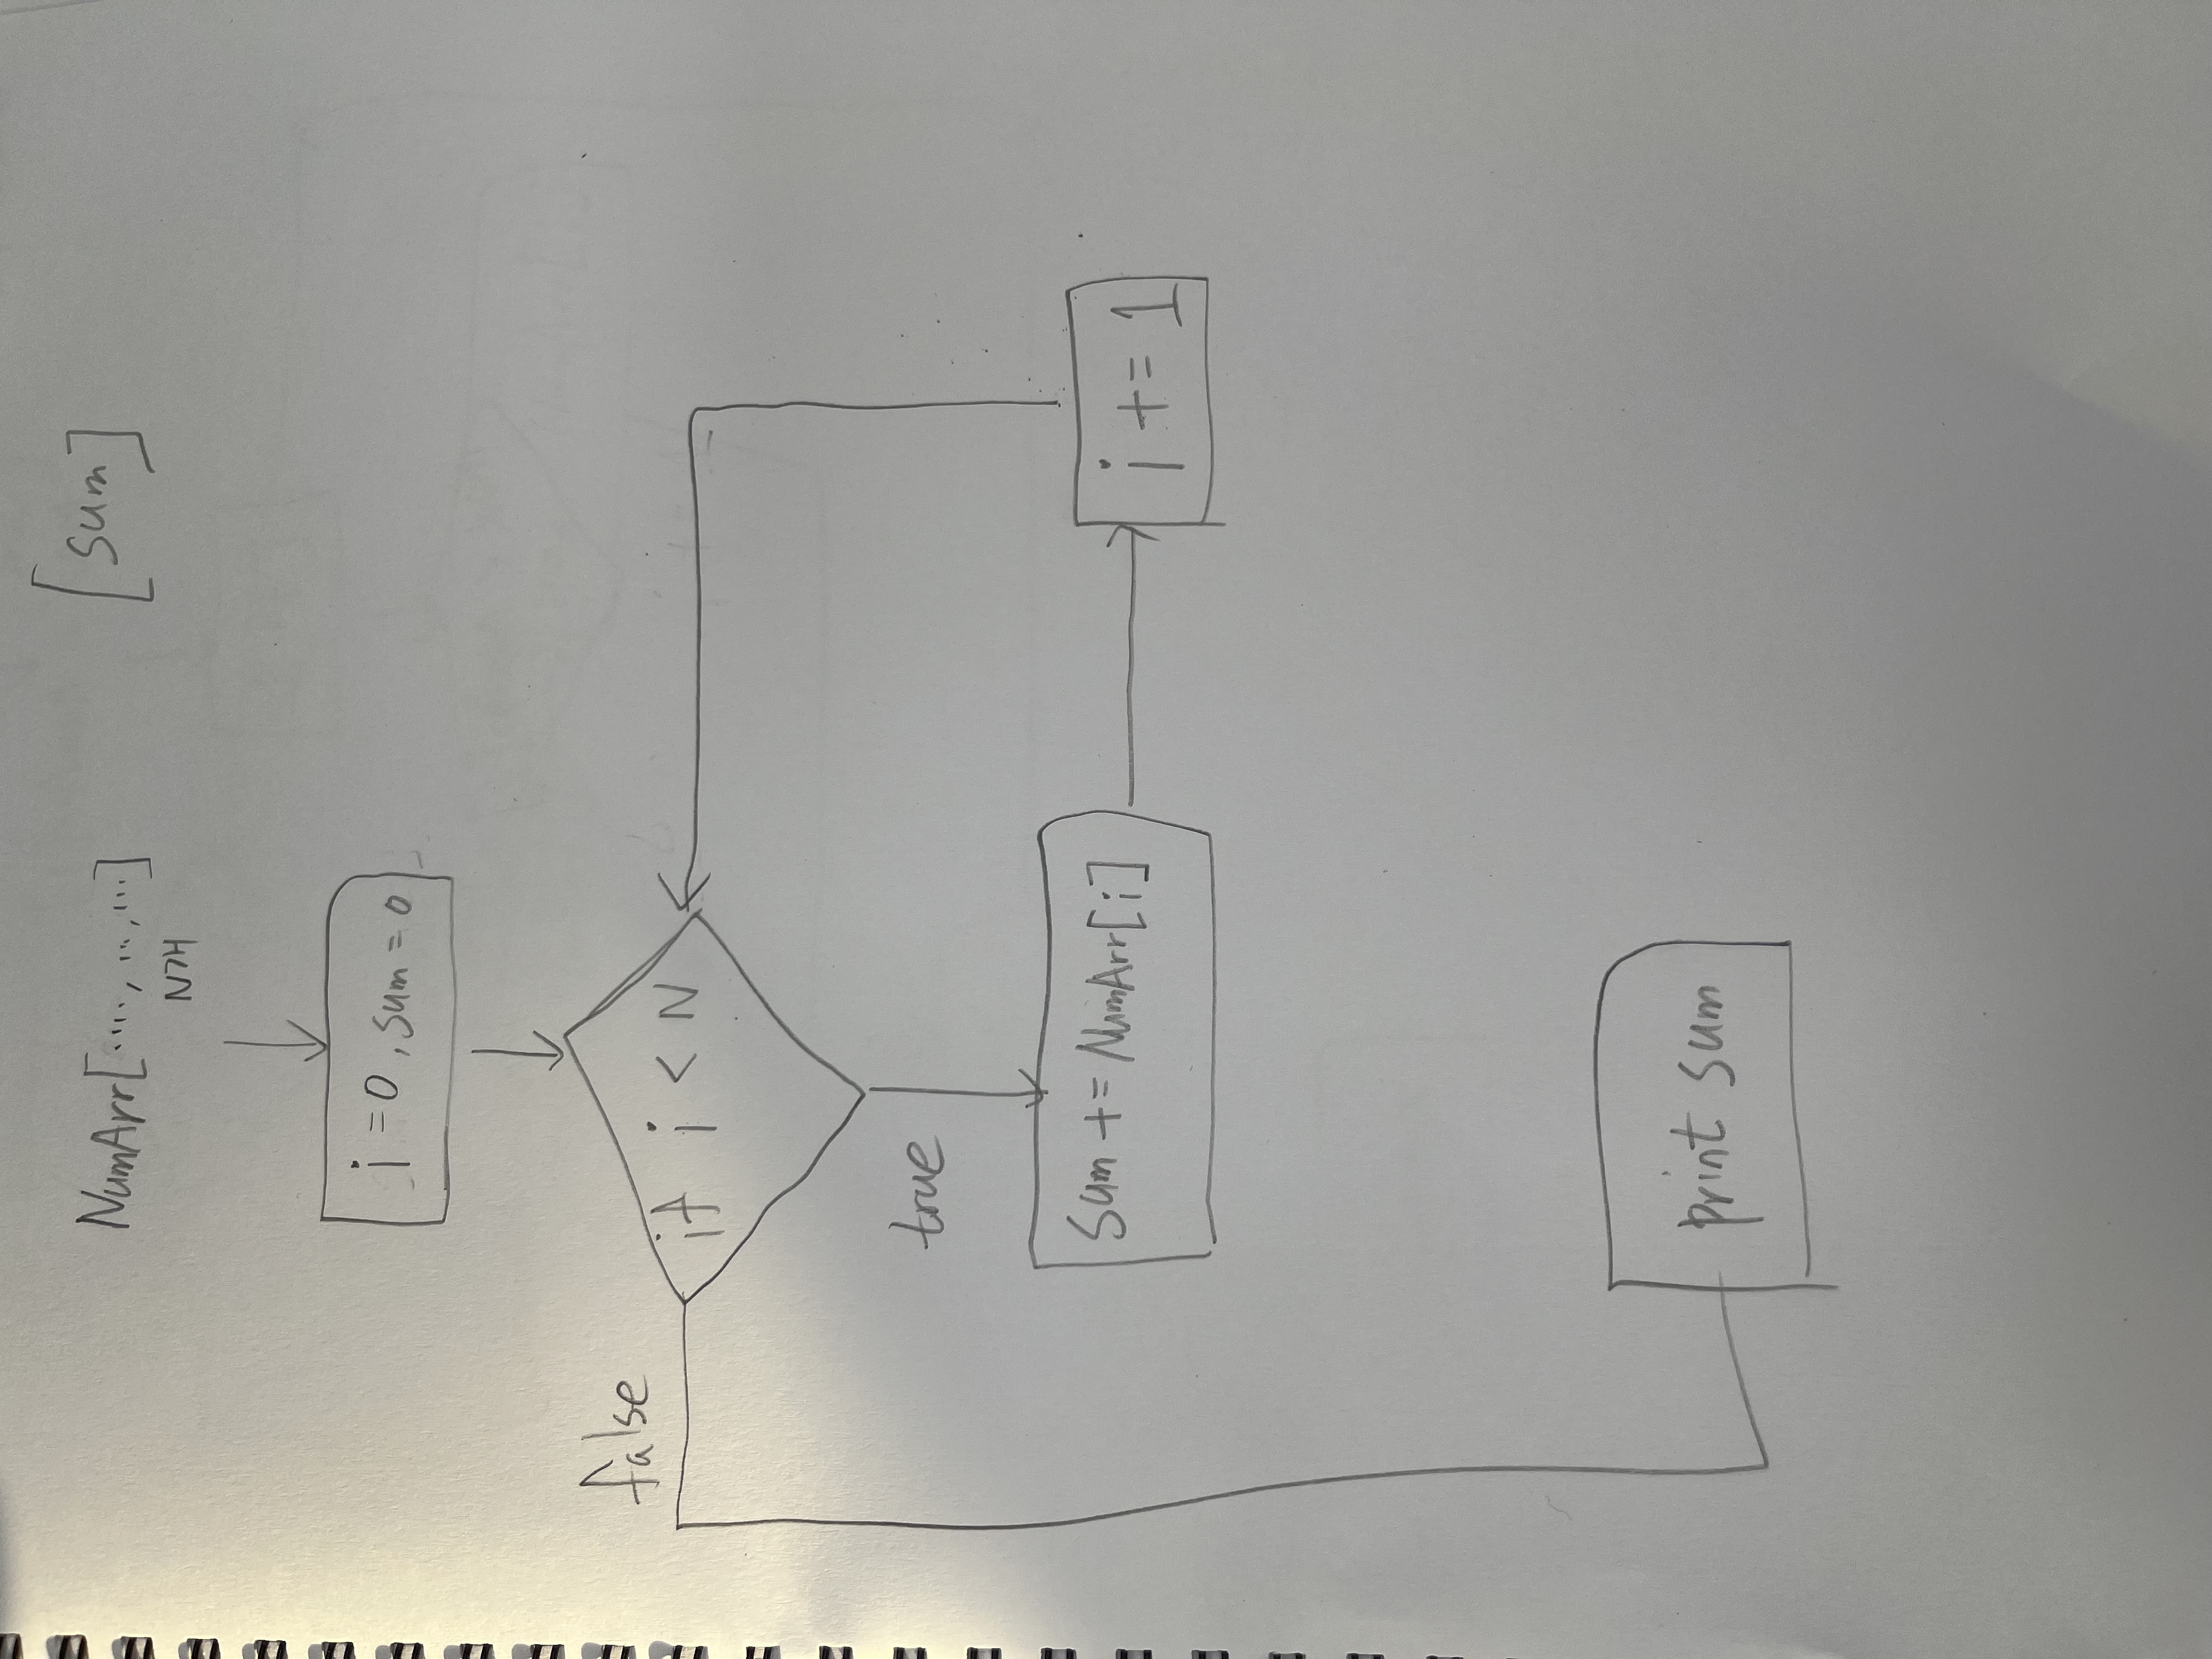 NumArr[....,...,...]
N개
[sum]
i =0, sum = 0
if i < N
false
true
sum += NumArr[i]
i += 1
print sum